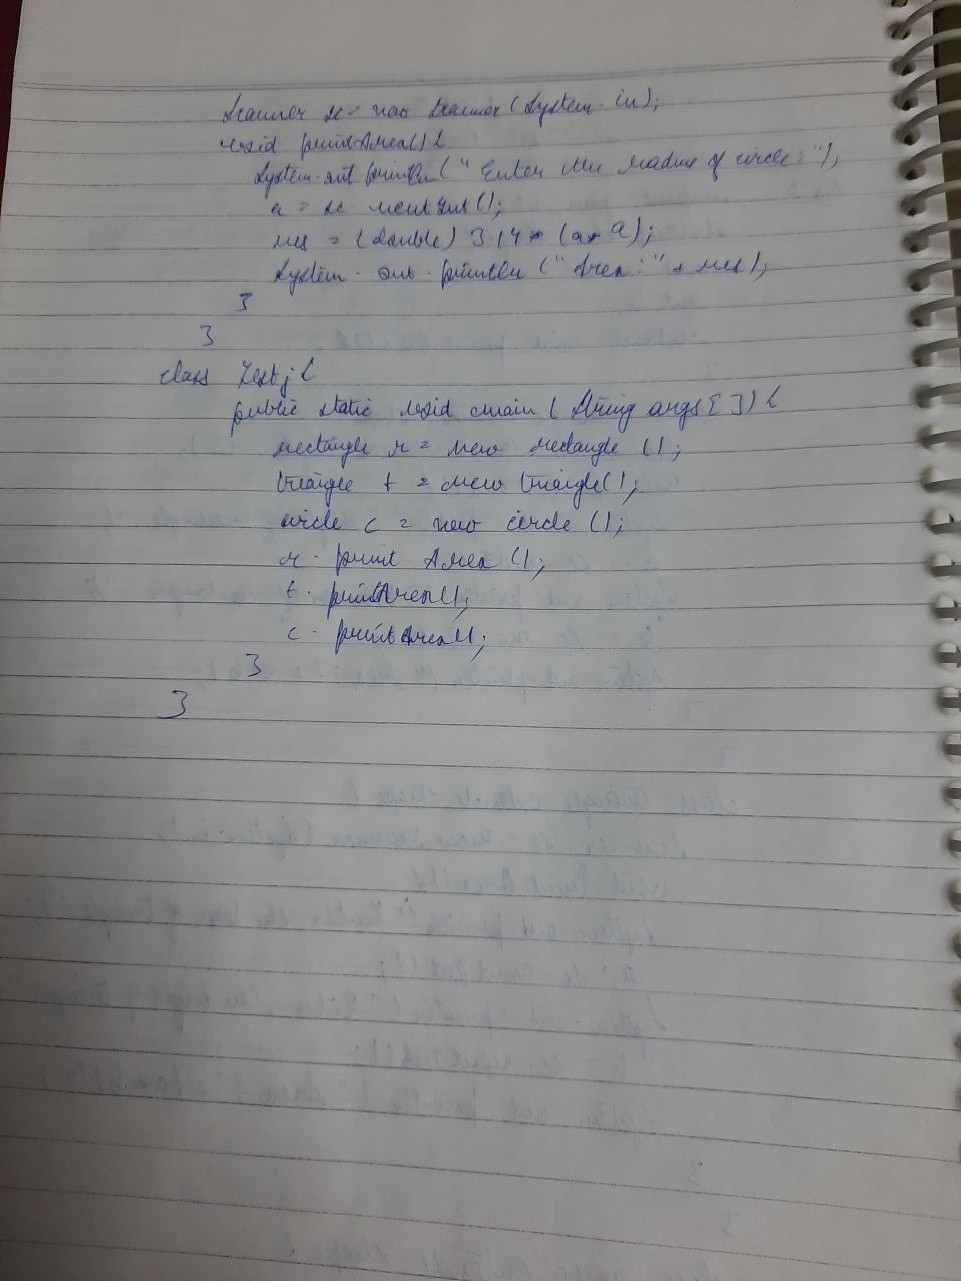 Scanner sc = new Scanner (System.in);
void printArea() {
System.out.println(" Enter the radius of circle : ");
a = sc. nextInt();
res = (double) 3.14 * (a* a);
System. out. println (" Area: " + res);
}
}
class Testj {
public static void main ( String args[ ]) {
rectangle r = new rectangle ();
triangle t = new triangle();
circle c = new circle ();
r. print Area ();
t. printArea();
c. printArea();
}
}